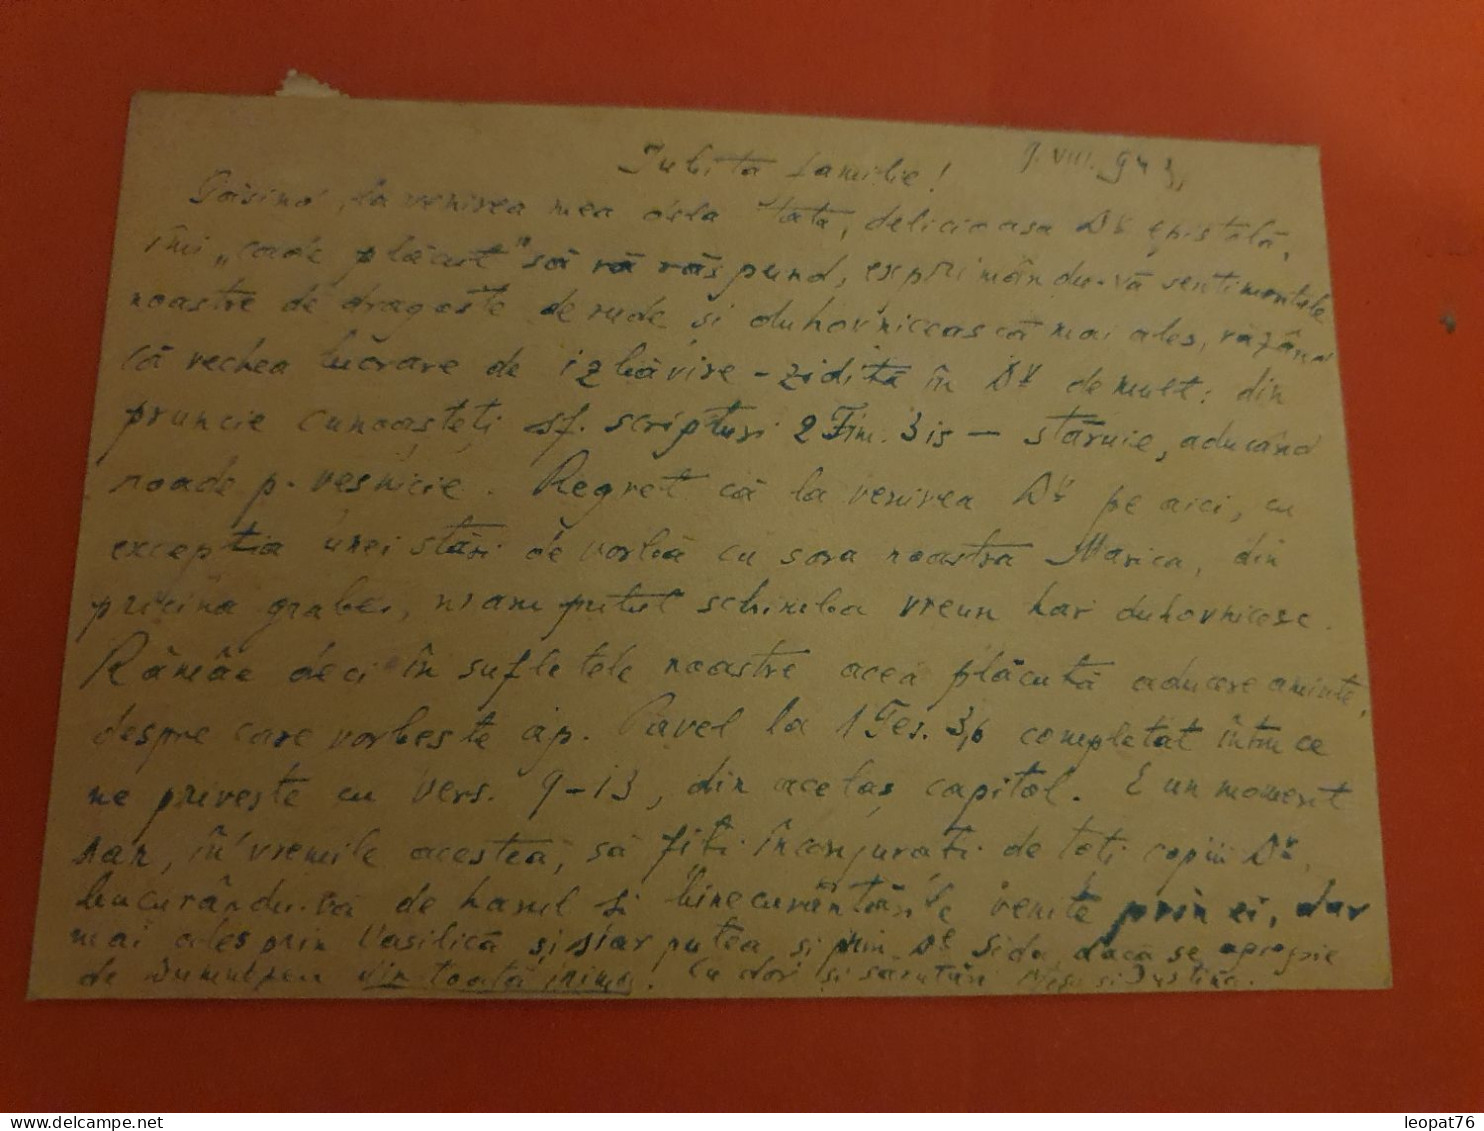 Iubită familie! 9.VIII.943.
Găsind, la venirea mea dela Tata, delicioasa Dv epistolă,
îmi „cade plăcut" să vă răspund, exprimându-vă sentimentele
noastre de dragoste de rude și duhovnicească mai ales, văzând
că vechea lucrare de izbăvire - zidită în Dv demult: din
pruncie cunoașteți sf. scripturi 2 Tim. 3 15 - stăruie, aducând
roade p. veșnicie. Regret că la venirea Dv pe aici, cu
excepția unei stări de vorbă cu sora noastră Marica, din
pricina grabei, n'am putut schimba vreun har duhovnicesc.
Rămâe deci în sufletele noastre acea plăcută aducere aminte,
despre care vorbește ap. Pavel la 1 Tes. 3,6 completat întru ce
ne privește cu vers. 9-13, din acelaș capitol. E un moment
rar, în vremile acestea, să fiți înconjurați de toți copiii Dv.
bucurându-vă de harul și binecuvântările venite prin ei, dar
mai ales prin Vasilică și s'ar putea și prin Dv, dacă se apropie
de Dumnezeu din toată inima. Cu dor și sărutări și Justina.
www.delcampe.net
leopat76